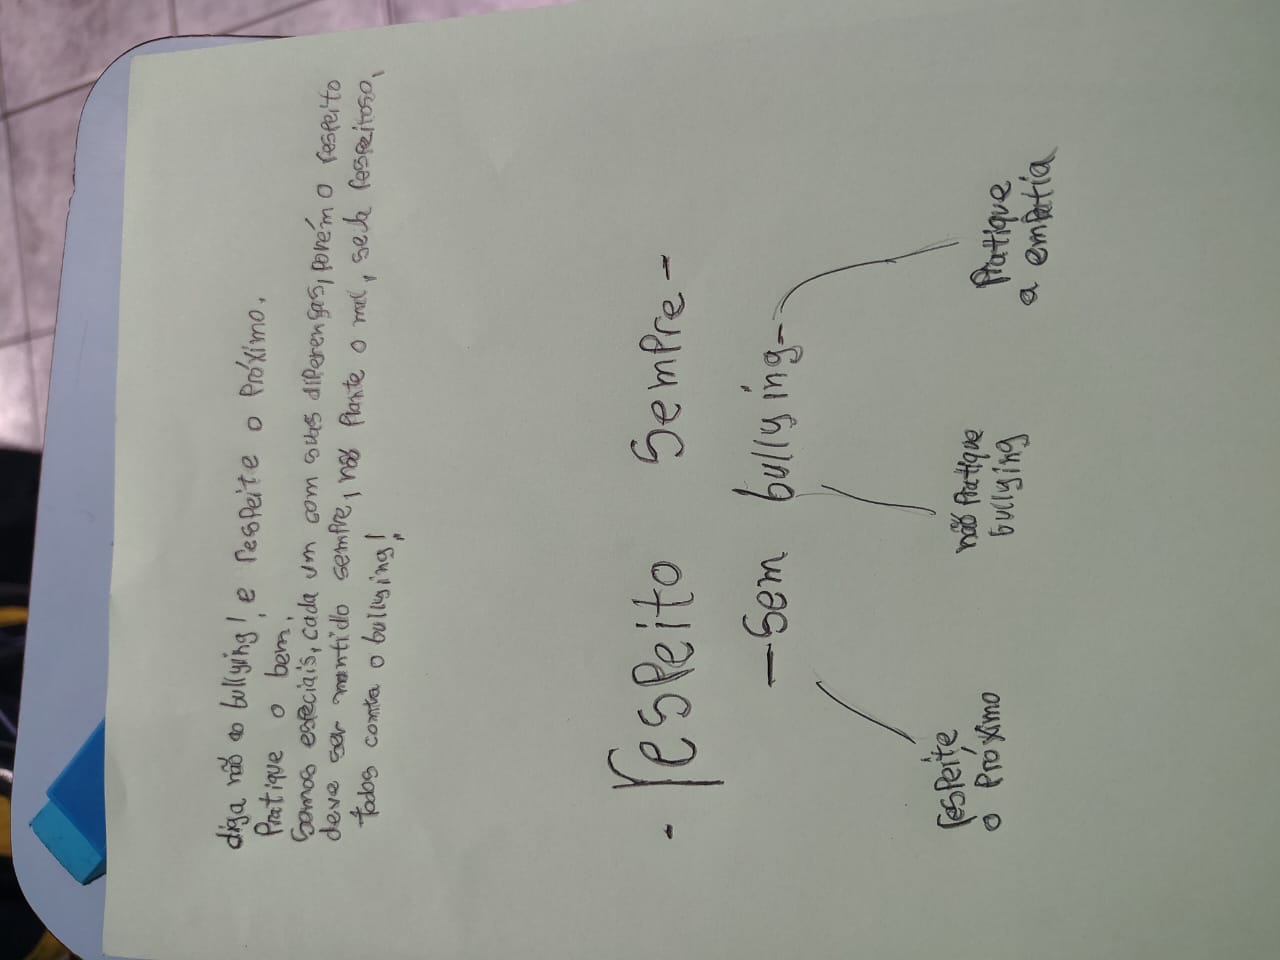 diga não ao bullying!, e respeite o próximo.
Pratique o bem.
Somos especiais, cada um com suas diferenças, porém o respeito
deve ser mantido sempre, não plante o mal, seja respeitoso,
todos contra o bullying!
- respeito sempre -
- sem bullying -
respeite
o próximo
não pratique
bullying
Pratique
a empatia